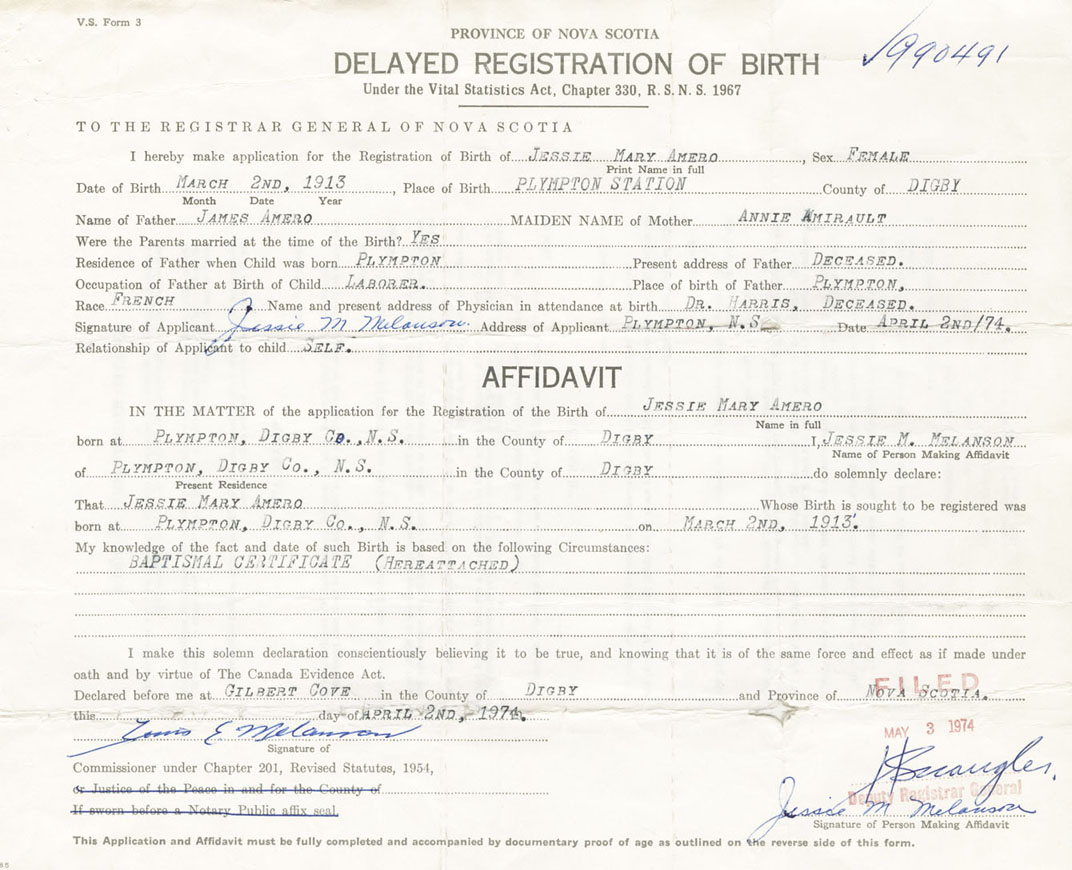 V.S. Form 3
PROVINCE OF NOVA SCOTIA
1990491
DELAYED REGISTRATION OF BIRTH
Under the Vital Statistics Act, Chapter 330, R.S.N.S. 1967
TO THE REGISTRAR GENERAL OF NOVA SCOTIA
I hereby make application for the Registration of Birth of JESSIE MARY AMERO, Sex FEMALE
Print Name in full
Date of Birth MARCH 2ND, 1913, Place of Birth PLYMPTON STATION County of DIGBY
Month Date Year
Name of Father JAMES AMERO MAIDEN NAME of Mother ANNIE AMIRAULT
Were the Parents married at the time of the Birth? YES
Residence of Father when Child was born PLYMPTON Present address of Father DECEASED.
Occupation of Father at Birth of Child LABORER. Place of birth of Father PLYMPTON,
Race FRENCH Name and present address of Physician in attendance at birth DR. HARRIS, DECEASED.
Signature of Applicant Jessie M Melanson. Address of Applicant PLYMPTON, N.S. Date APRIL 2ND/74.
Relationship of Applicant to child SELF.
AFFIDAVIT
IN THE MATTER of the application for the Registration of the Birth of JESSIE MARY AMERO
Name in full
born at PLYMPTON, DIGBY CO., N.S. in the County of DIGBY I, JESSIE M. MELANSON
Name of Person Making Affidavit
of PLYMPTON, DIGBY CO., N.S. in the County of DIGBY do solemnly declare:
Present Residence
That JESSIE MARY AMERO Whose Birth is sought to be registered was
born at PLYMPTON, DIGBY CO., N.S. on MARCH 2ND, 1913.
My knowledge of the fact and date of such Birth is based on the following Circumstances:
BAPTISMAL CERTIFICATE (HEREATTACHED)
I make this solemn declaration conscientiously believing it to be true, and knowing that it is of the same force and effect as if made under
oath and by virtue of The Canada Evidence Act.
Declared before me at GILBERT COVE in the County of DIGBY and Province of NOVA SCOTIA.
FILED
this day of APRIL 2ND, 1974.
MAY 3 1974
Louis E Melanson
Signature of
Commissioner under Chapter 201, Revised Statutes, 1954,
or Justice of the Peace in and for the County of
Deputy Registrar General
If sworn before a Notary Public affix seal.
Jessie M Melanson
Signature of Person Making Affidavit
This Application and Affidavit must be fully completed and accompanied by documentary proof of age as outlined on the reverse side of this form.